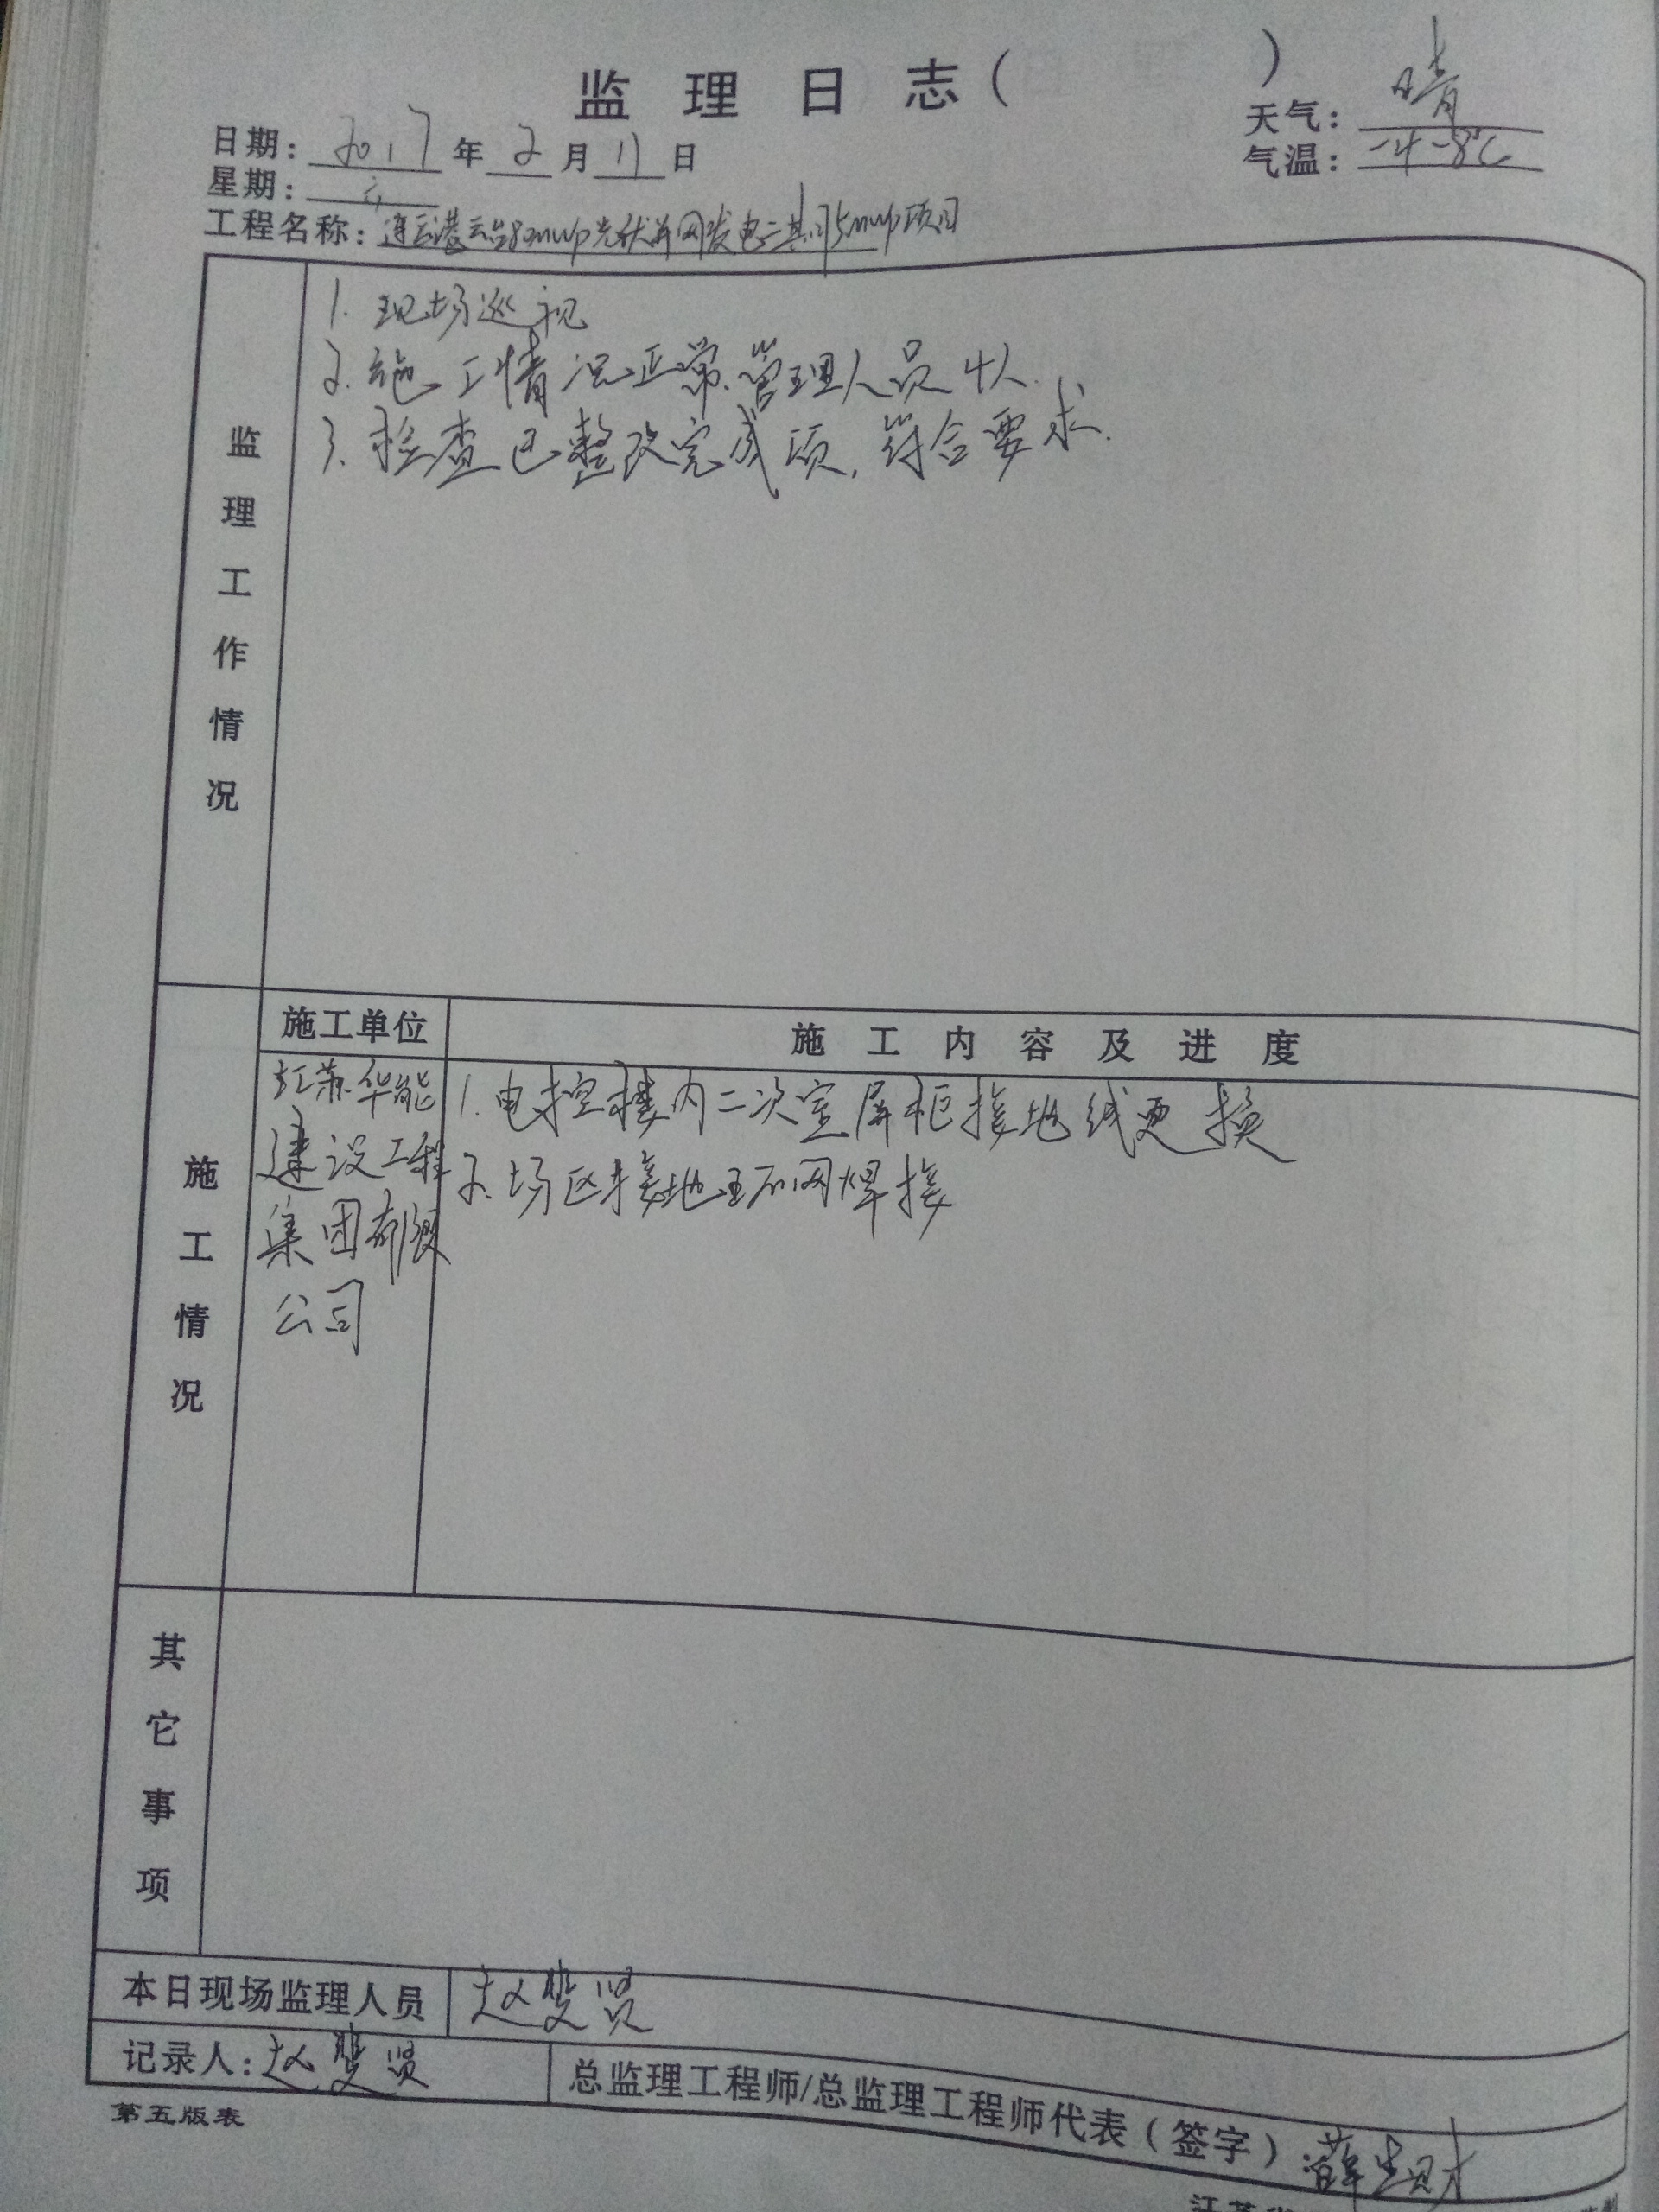 监 理 日 志（ ）
日期： 2017 年 2 月 11 日
天气： 晴
星期： 六
气温： -4-8℃
工程名称：连云港云台80mwp光伏并网发电二期35mwp项目
监理工作情况
1. 现场巡视
2. 施工情况正常、管理人员4人.
3. 检查已整改完成项，符合要求.
施工情况
施工单位
施 工 内 容 及 进 度
江苏华能
建设工程
集团有限
公司
1. 电控楼内二次室屏柜接地线更换
2. 场区接地环网焊接
其它事项
本日现场监理人员
赵 贤
记录人：赵 贤
总监理工程师/总监理工程师代表（签字）：薛生财
第五版表
江苏省